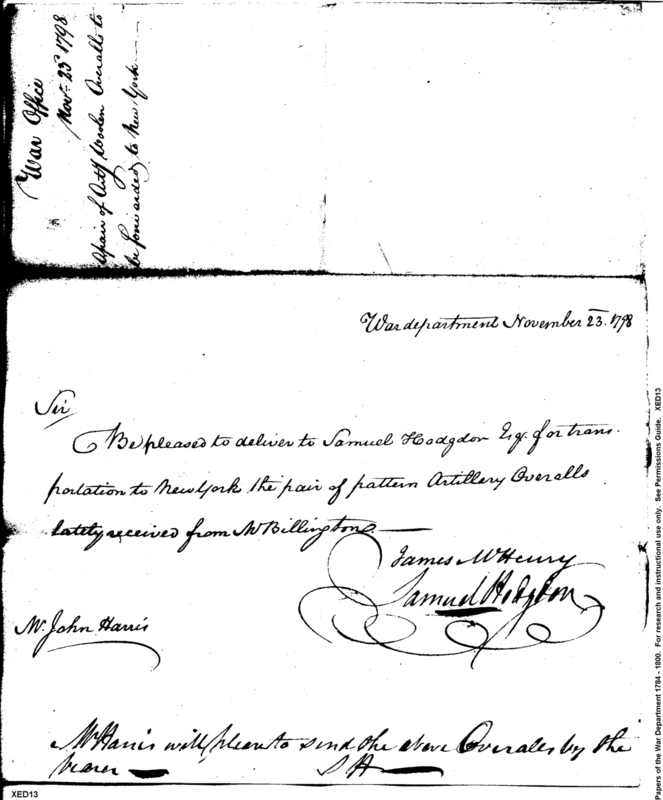 War Office
Novr. 23d 1798
A pair of Arty Woolen Overalls to
be forwarded to New York
War department November 23. 1798
Sir
Be pleased to deliver to Samuel Hodgdon Esq. for trans-
portation to New York the pair of pattern Artillery Overalls
lately received from Mr Billington
James McHenry
Samuel Hodgdon
Mr. John Harris
Mr Harris will please to send the above Overalls by the
bearer
S H
XED13
Papers of the War Department 1784 - 1800. For research and instructional use only. See Permissions Guide. XED13